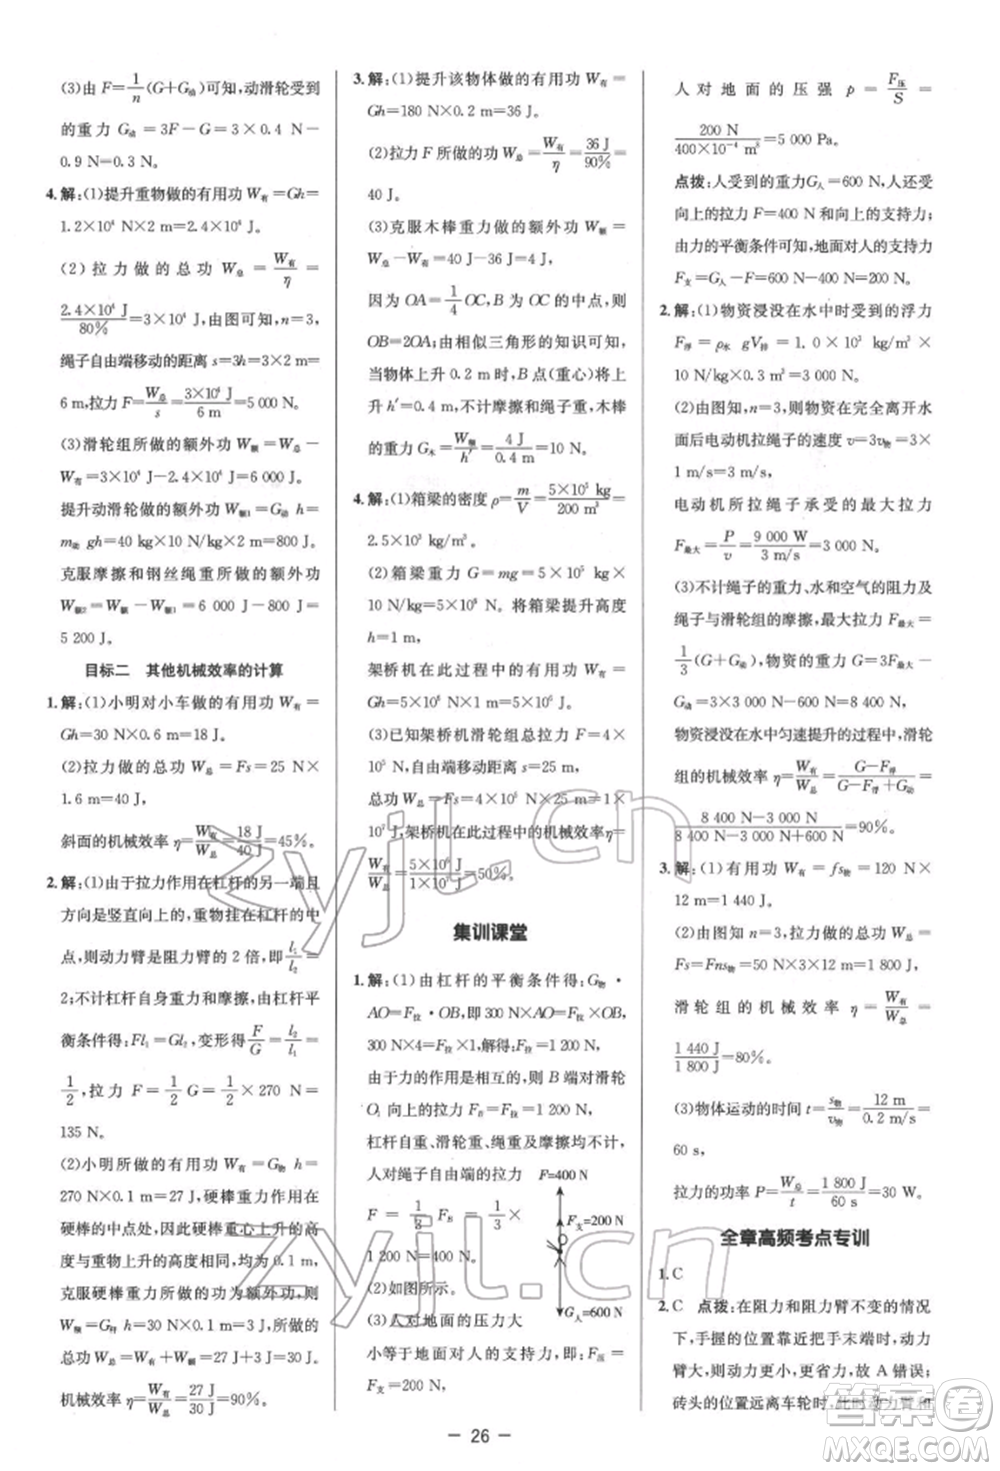 (3)由 F=1/n(G+G动)得,动滑轮受到
的重力 G动=3F-G=3×0.4 N-
0.9 N=0.3 N。
4.解:(1)提升重物做的有用功 W有=Gh=
1.2×10⁴ N×2 m=2.4×10⁴ J。
(2)拉力做的总功 W总=W有/η=
2.4×10⁴ J/80%=3×10⁴ J,由图可知,n=3,
绳子自由端移动的距离 s=3h=3×2 m=
6 m,拉力 F=W总/s=3×10⁴ J/6 m=5 000 N。
(3)滑轮组所做的额外功 W额=W总-
W有=3×10⁴ J-2.4×10⁴ J=6 000 J,
提升动滑轮做的额外功 W额1=G动 h=
m动 gh=40 kg×10 N/kg×2 m=800 J,
克服摩擦和钢丝绳重所做的额外功
W额2=W额-W额1=6 000 J-800 J=
5 200 J。
目标二 其他机械效率的计算
1.解:(1)小明对小车做的有用功 W有=
Gh=30 N×0.6 m=18 J。
(2)拉力做的总功 W总=Fs=25 N×
1.6 m=40 J,
斜面的机械效率 η=W有/W总=18 J/40 J=45%。
2.解:(1)由于拉力作用在杠杆的另一端且
方向是竖直向上的,重物挂在杠杆的中
点,则动力臂是阻力臂的 2 倍,即 l₁/l₂=
2;不计杠杆自身重力和摩擦,由杠杆平
衡条件得:Fl₁=Gl₂,故 F/G=l₂/l₁=
1/2,拉力 F=1/2 G=1/2×270 N=
135 N。
(2)小明所做的有用功 W有=G物 h=
270 N×0.1 m=27 J,硬棒重力作用在
硬棒的中点处,因此硬棒重心上升的高
度与重物上升的高度相同,均为 0.1 m,
克服硬棒重力所做的功为额外功,则
W额=G杆 h=30 N×0.1 m=3 J,所做的
总功 W总=W有+W额=27 J+3 J=30 J,
机械效率 η=W有/W总=27 J/30 J=90%。
3.解:(1)提升该物体做的有用功 W有=
Gh=180 N×0.2 m=36 J。
(2)拉力 F 所做的功 W总=W有/η=36 J/90%=
40 J。
(3)克服木棒重力做的额外功
W额=W总-W有=40 J-36 J=4 J,
因为 OA=1/4 OC,B 为 OC 的中点,则
OB=2OA;由相似三角形的知识可知,
当物体上升 0.2 m 时,B 点(重心)将上
升 h′=0.4 m,不计摩擦和绳子重,木棒
的重力 G木=W额/h′=4 J/0.4 m=10 N。
4.解:(1)箱梁的密度 ρ=m/V=5×10⁵ kg/200 m³=
2.5×10³ kg/m³。
(2)箱梁重力 G=mg=5×10⁵ kg×
10 N/kg=5×10⁶ N,将箱梁提升高度
h=1 m,
架桥机在此过程中的有用功 W有=
Gh=5×10⁶ N×1 m=5×10⁶ J。
(3)已知架桥机滑轮组总拉力 F=4×
10⁵ N,自由端移动距离 s=25 m,
总功 W总=Fs=4×10⁵ N×25 m=1×
10⁷ J,架桥机在此过程的机械效率 η=
W有/W总=5×10⁶ J/1×10⁷ J=50%。
集训课堂
1.解:(1)由杠杆的平衡条件得:G物·
AO=F拉·OB,即 300 N×AO=F拉×OB,
300 N×4=F拉×1,解得:F拉=1 200 N,
由于力的作用是相互的,则 B 端对滑轮
O₁ 向上的拉力 FB=F拉=1 200 N,
杠杆自重、滑轮重、绳重及摩擦均不计,
人对绳子自由端的拉力
F=1/3 FB=1/3×
1 200 N=400 N。
(2)如图所示。
F=400 N
F支=200 N
G人=600 N
(3)人对地面的压力大
小等于地面对人的支持力,即:F压=
F支=200 N,
人对地面的压强 p=F压/S=
200 N/400×10⁻⁴ m²=5 000 Pa。
点拨:人受到的重力 G人=600 N,人还受
向上的拉力 F=400 N 和向上的支持力;
由力的平衡条件可知,地面对人的支持力
F支=G人-F=600 N-400 N=200 N。
2.解:(1)物资浸没在水中时受到的浮力
F浮=ρ水 gV排=1.0×10³ kg/m³×
10 N/kg×0.3 m³=3 000 N。
(2)由图知,n=3,则物资在完全离开水
面后电动机拉绳子的速度 v=3v物=3×
1 m/s=3 m/s,
电动机所拉绳子承受的最大拉力
F最大=P/v=9 000 W/3 m/s=3 000 N。
(3)不计绳子的重力、水和空气的阻力及
绳子与滑轮组的摩擦,拉力 F最大=
1/3(G+G动),物资的重力 G=3F最大-
G动=3×3 000 N-600 N=8 400 N,
物资浸没在水中匀速提升的过程中,滑轮
组的机械效率 η=W有/W总=G-F浮/G-F浮+G动=
8 400 N-3 000 N/8 400 N-3 000 N+600 N=90%。
3.解:(1)有用功 W有=fs物=120 N×
12 m=1 440 J。
(2)由图知,n=3,拉力做的总功 W总=
Fs=Fns物=50 N×3×12 m=1 800 J,
滑轮组的机械效率 η=W有/W总=
1 440 J/1 800 J=80%。
(3)物体运动的时间 t=s物/v物=12 m/0.2 m/s=
60 s,
拉力的功率 P=W总/t=1 800 J/60 s=30 W。
全章高频考点专训
1.C
2.C 点拨:在阻力和阻力臂不变的情况
下,手握的位置靠近把手末端时,动力
臂大,则动力更小,更省力,故 A 错误;
砖头的位置远离车轮时,此时动力臂和
— 26 —
zyjl.cn
zyjl.cn
答案圈
MXQE.COM